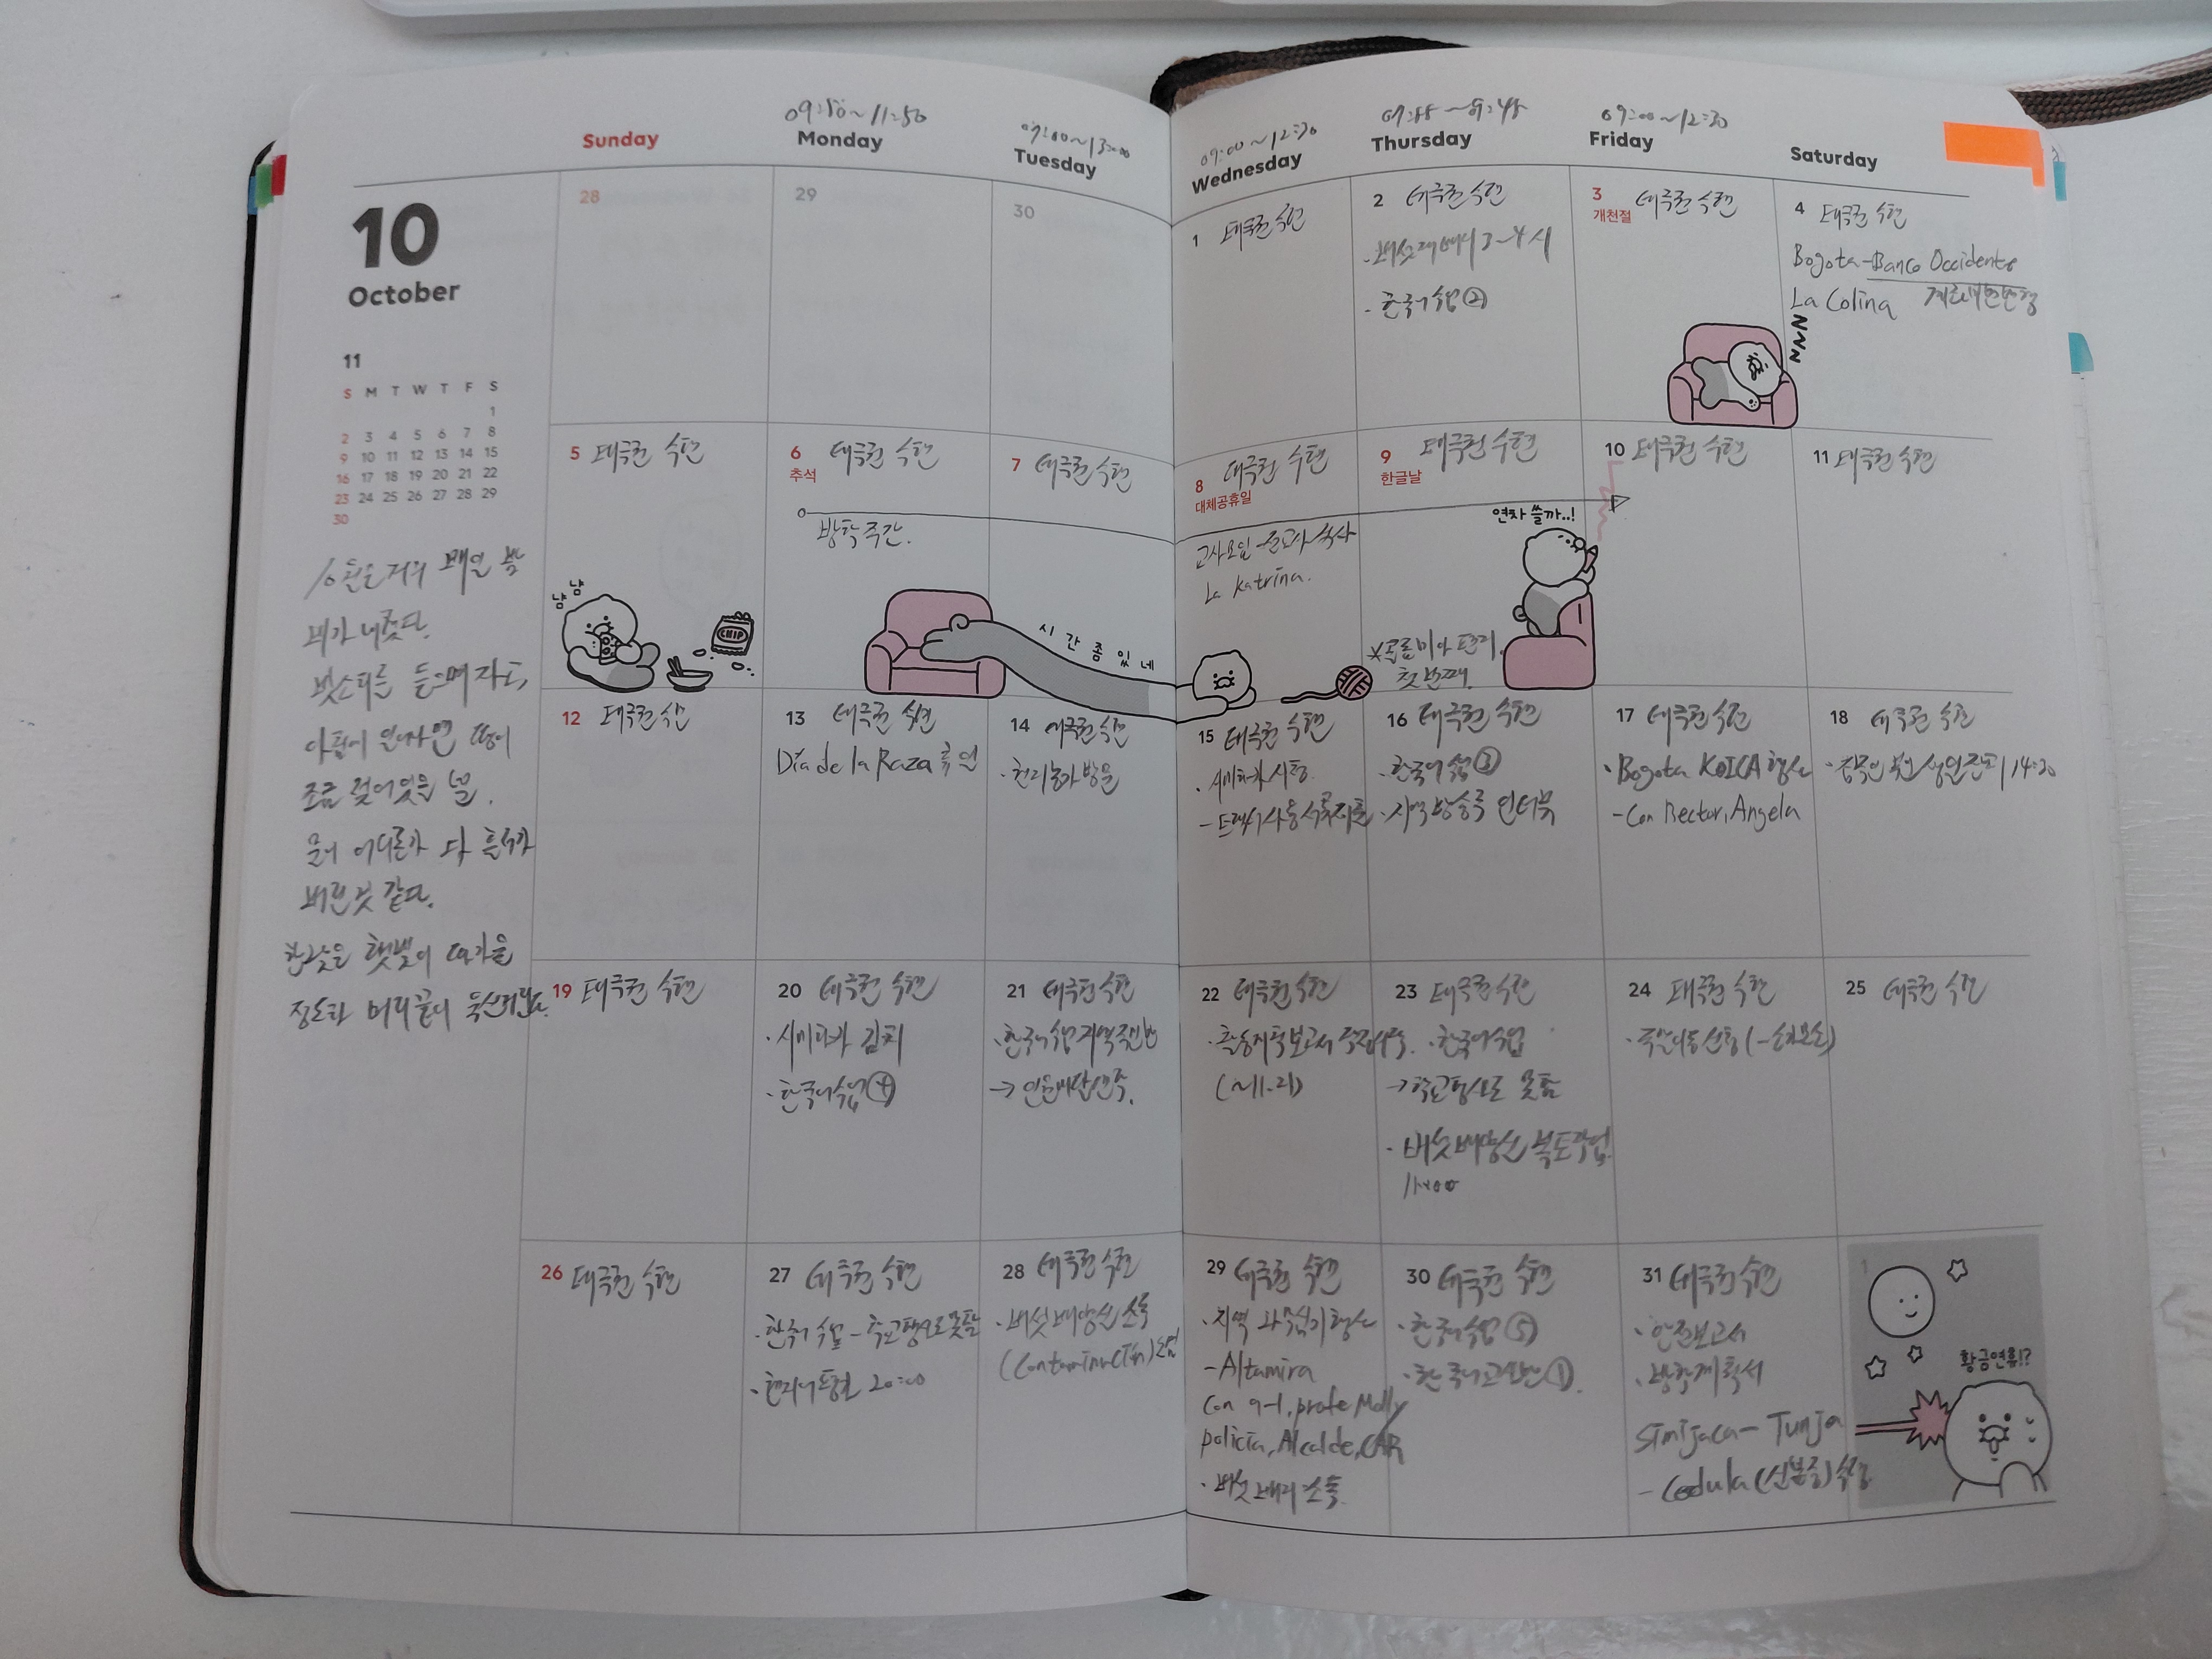 09:00~12:30
09:00~12:30
Sunday
Monday
Tuesday
Wednesday
Thursday
Friday
Saturday
10
October
11
S M T W T F S
1
2 3 4 5 6 7 8
9 10 11 12 13 14 15
16 17 18 19 20 21 22
23 24 25 26 27 28 29
30
10월은 거의 매일 밤
비가 내렸다.
빗소리를 들으며 자고,
아침에 일어나면 땅이
조금 젖어있을 뿐.
물이 어디론가 다 흘러가
버린 것 같다.
한낮은 햇빛이 따가울
정도라 머리끝이
28
29
30
1 태극권 수련
2 태극권 수련
3-4시
· 한국어 수업 ②
3 태극권 수련
개천절
4 태극권 수련
Bogota-Banco Occidente
La Colina
zzzz
5 태극권 수련
냠 냠
CHIP
6 태극권 수련
추석
방학 주간.
7 태극권 수련
시간 좀 있네
8 태극권 수련
대체공휴일
La Katrina.
9 태극권 수련
한글날
*콜롬비아
첫 번째.
연차 쓸까..!
10 태극권 수련
11 태극권 수련
12 태극권 수련
13 태극권 수련
Día de la Raza 휴일
14 태극권 수련
· 현지농가 방문
15 태극권 수련
16 태극권 수련
· 한국어 수업 ③
· 지역 방송국 인터뷰
17 태극권 수련
· Bogota KOICA 행사
- Con Rector, Angela
18 태극권 수련
14:30
19 태극권 수련
20 태극권 수련
김치
· 한국어 수업 ④
21 태극권 수련
· 한국어 수업 지역주민반
22 태극권 수련
(~11.21)
23 태극권 수련
· 한국어 수업
→ 학교행사로 못함
· 버섯 배양실 복토작업
24 태극권 수련
25 태극권 수련
26 태극권 수련
27 태극권 수련
· 한국어 수업 - 학교행사로 못함
· 현지어 시험 20:00
28 태극권 수련
· 버섯 배양실 소독
29 태극권 수련
· 지역 과학전시 행사
- Altamira
Con 9-1, profe Molly
policia, Alcalde, CAR
· 버섯 배지 소독
30 태극권 수련
· 한국어 수업 ⑤
· 한국어 교실반 ①.
31 태극권 수련
· 안전보고서
· 방학계획서
Simijaca - Tunja
- Cedula (신분증) 수령
1
황금연휴!?